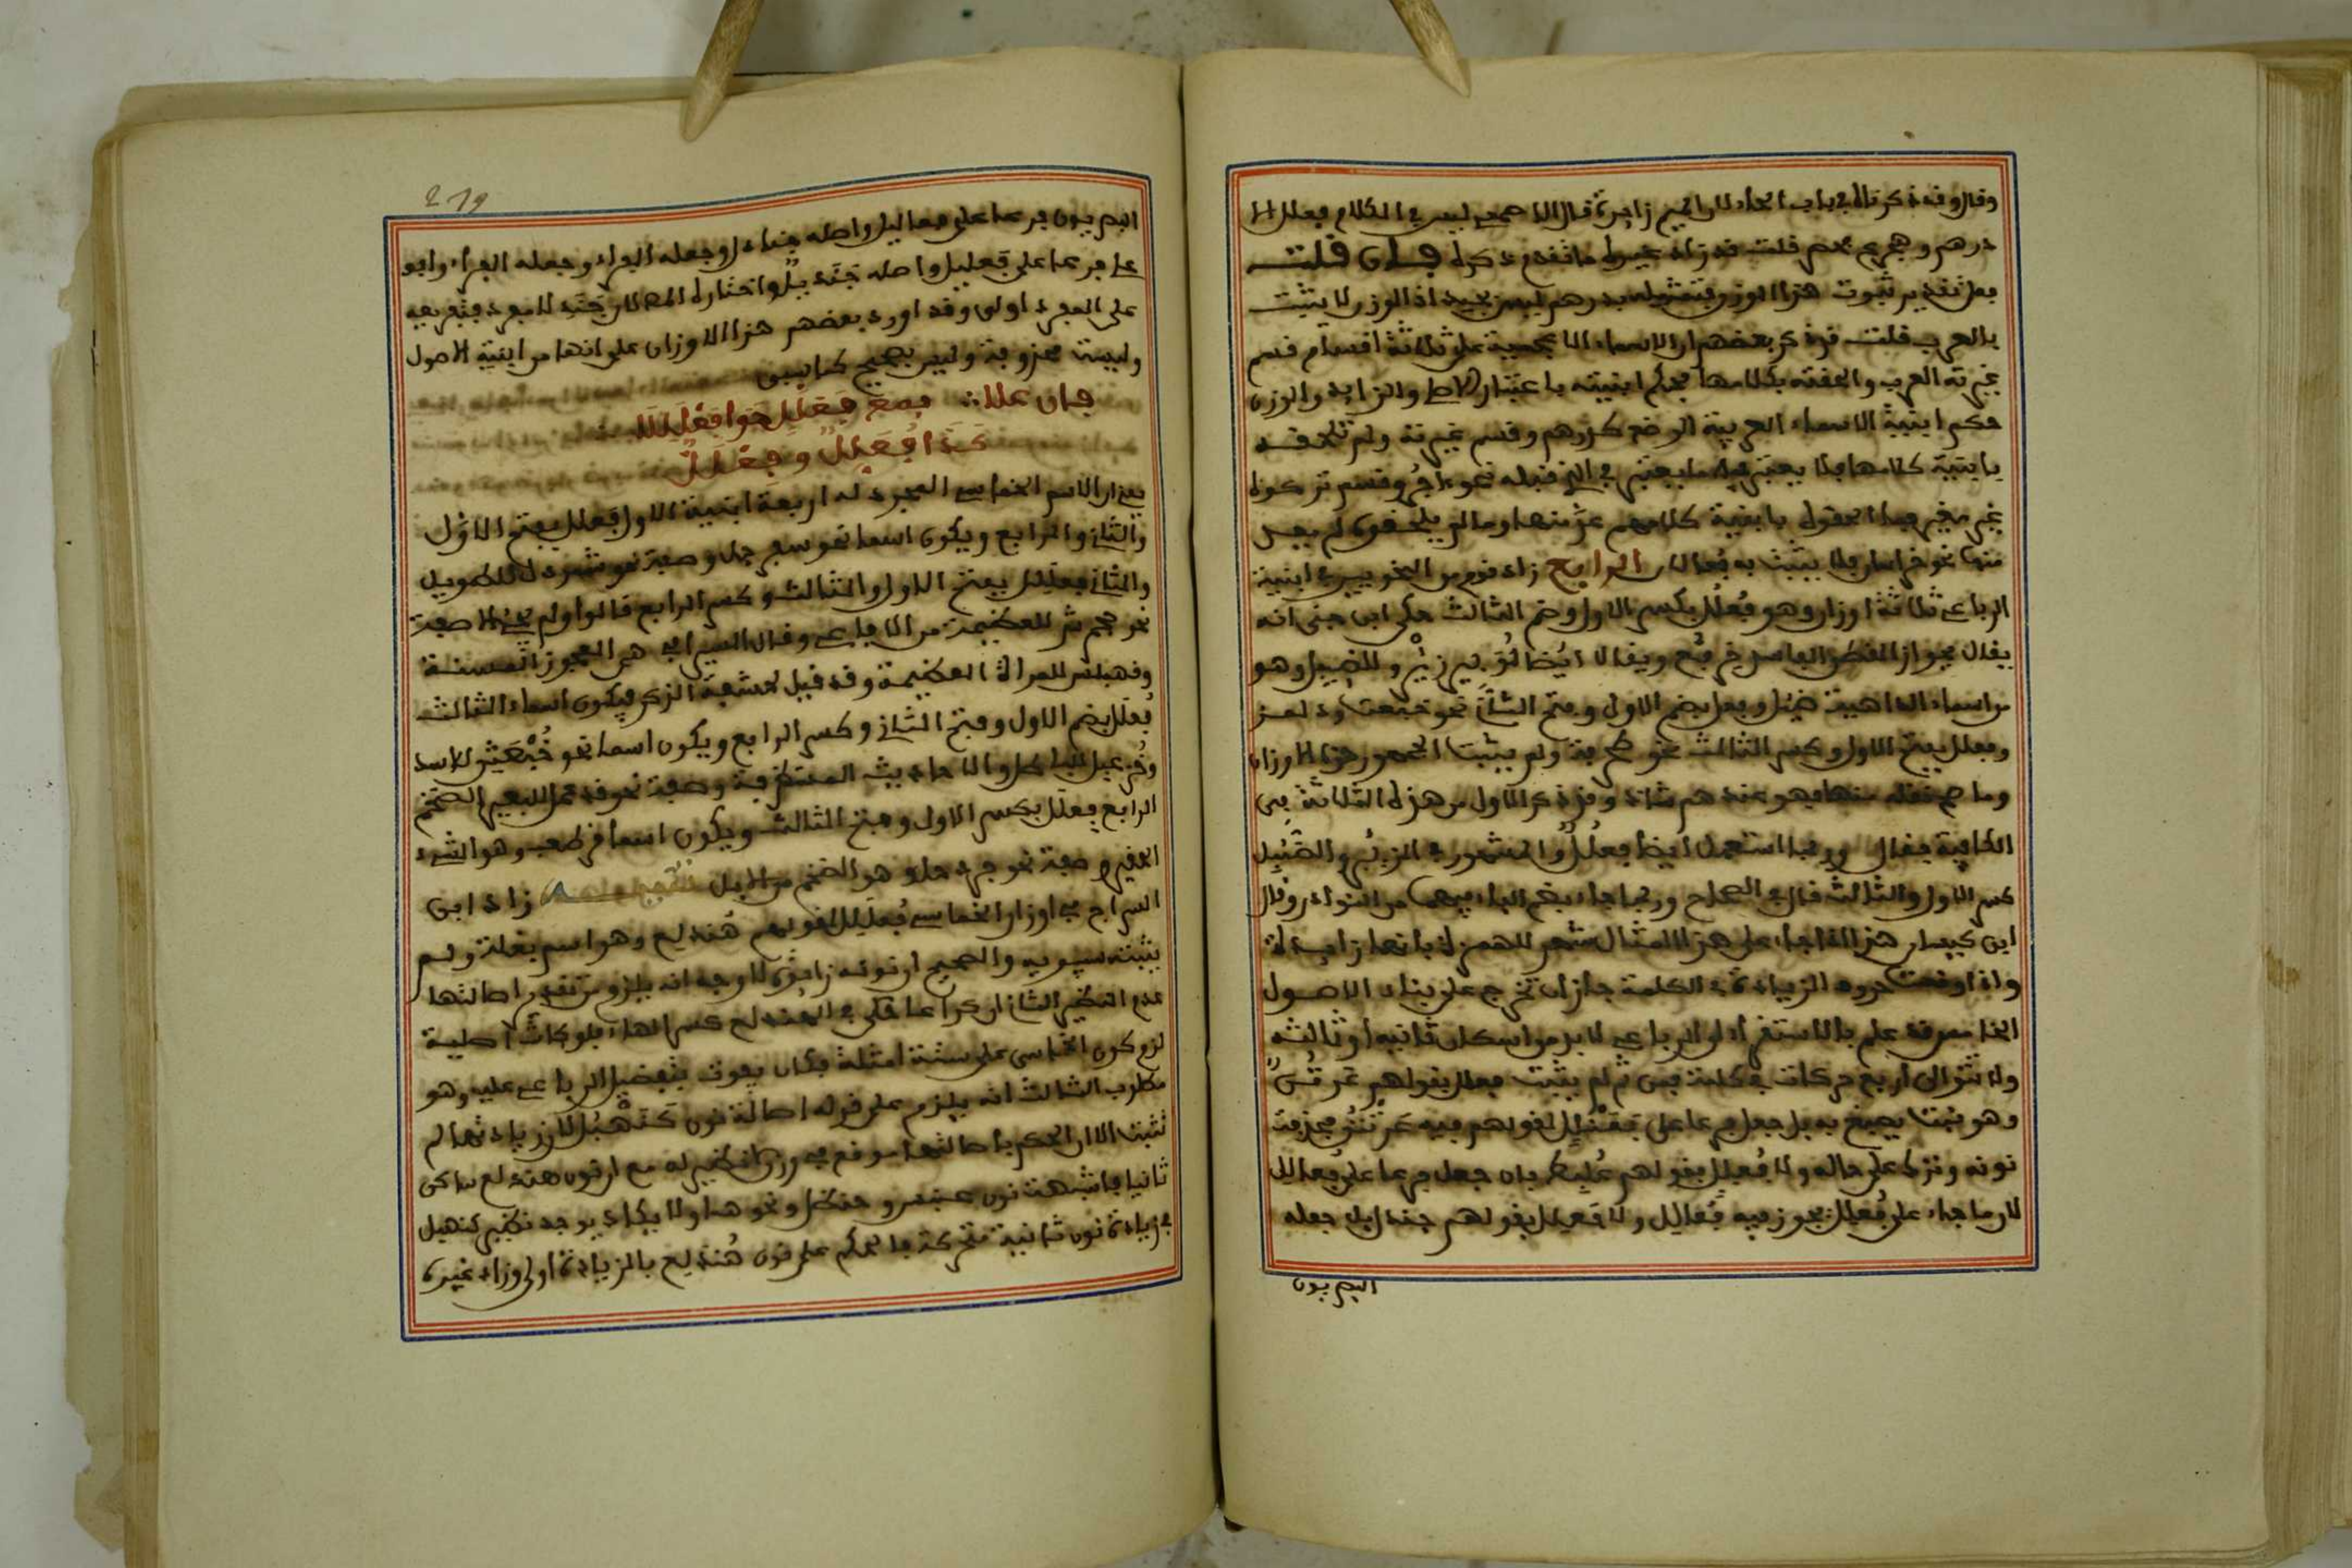 وقال وقد ذكر ذلك في باب الحاء لان الميم زايدة قال الاصمعي ليس في الكلام فعلل الا
درهم وهجرع قلت قد زاد غيره ما تقدم ذكره فان قلت
فعلى تقدير ثبوت هذا الوزن فتمثيله بدرهم ليس بجيد اذ الوزن لا يثبت
بالمعرب قلت قد ذكر بعضهم ان الاسماء الاعجمية على ثلاثة اقسام قسم
غيرته العرب والحقته بكلامها فحكم ابنيته باعتبار الاصلي والزايد والوزن
حكم ابنية الاسماء العربية الوضع كدرهم وقسم غيرته ولم تلحقه
بابنية كلامها فلا يعتبر فيه ما يعتبر في الذي قبله نحو ءاجر وقسم تركوه
غير مغير فما الحقوه بابنية كلامهم عد منها وما لم يلحقوه لم يعد
منها نحو خراسان فلا يثبت به فعالان الرابع زاد قوم من النحويين في ابنية
الرباعي ثلاثة اوزان وهو فعلل بكسر الاول وضم الثالث حكى ابن جني انه
يقال لجواز القطن الفاسد خرفع ويقال ايضا لزيبر زئبر وللضيبل وهو
من اسماء الداهية ضئبل وفعلل بضم الاول وفتح الثاني نحو خبعث ودلمز
وفعلل بفتح الاول وكسر الثالث نحو طحربة ولم يثبت الجمهور هذه الاوزان
وما صح نقله منها فهو عندهم شاذ وقد ذكر الاول من هذه الثلاثة في
الكافية فقال وربما استعمل ايضا فعلل والمشهور في الزئبر والضئبل
كسر الاول والثالث قال في الصحاح وربما جاء بضم الباء فيهما من النوادر وقال
ابن كيسان هذا اذا جاء على هذا المثال شهد للهمزة بانها زايدة
واذا وقعت حروف الزيادة في الكلمة جاز ان تخرج على بناء الاصول
الخامس قد علم بالاستقراء ان الرباعي لا بد من اسكان ثانيه او ثالثه
ولا تتوالى اربع حركات في كلمة فمن ثم لم يثبت فعلل بقولهم عرتن
وهو نبت يصبغ به بل جعل فرعا على فعنلل لقولهم فيه عرنتن فحذفت
نونه وترك على حاله ولا فعلل بقولهم علبط بل جعل فرعا على فعالل
لان ما جاء على فعلل يجوز فيه فعالل ولا فعلل بقولهم جندل بل جعله
البصريون
279
البصريون فرعا على فعالل واصله جنادل وجعله الفراء وابو
علي فرعا على فعليل واصله جنديل واختاره الناظم لان جندل لا مفرد فتفريعه
على المفرد اولى وقد اورد بعضهم هذه الاوزان على انها من ابنية الاصول
وليست محذوفة وليس بصحيح كما سبق
فان علا فمع فعلل حوى فعلللا
كذا فعلل وفعلل
يعني ان الاسم الخماسي المجرد له اربعة ابنية الاول فعلل بفتح الاول
والثاني والرابع ويكون اسما نحو سفرجل وصفة نحو شمردل للطويل
والثاني فعللل بفتح الاول والثالث وكسر الرابع قالوا ولم يجئ الا صفة
نحو جحمرش للعظيمة من الافاعي وقال السيرافي هي العجوز المسنة
وقهبلس للمراة العظيمة وقد قيل لحشفة الذكر فيكون اسما الثالث
فعلل بضم الاول وفتح الثاني وكسر الرابع ويكون اسما نحو خبعثن للاسد
وخزعبل للباطل والاحاديث المستظرفة وصفة نحو قذعمل للبعير الضخم
الرابع فعلل بكسر الاول وفتح الثالث ويكون اسما قرطعب وهو الشيء
الحقير وصفة نحو جردحل وهو الضخم من الابل زاد ابن
السراج في اوزان الخماسي فعلل لقولهم هندلع وهو اسم بقلة ولم
يثبته سيبويه والصحيح ان نونه زايدة لاوجه انه يلزم من تقدير اصالتها
عدم النظير الثاني ان كراعا حكى في الهندلع كسر الهاء فلو كانت اصلية
لزم كون الخماسي على ستة امثلة فكان يفوت بتفضيل الرباعي عليه وهو
مطلوب الثالث انه يلزم على قوله اصالة نون كنهبل لان زيادتها لم
تثبت الا ان الحكم باصالتها موقع في وزن لا نظير له مع ان نون هندلع ساكن
ثانيا فاشبهت نون عنبس وحنظل ونحوهما ولا يكاد يوجد نظير كنهبل
في زيادة نون ثانية متحركة فالحكم على نون هندلع بالزيادة اولى وزاد غيره